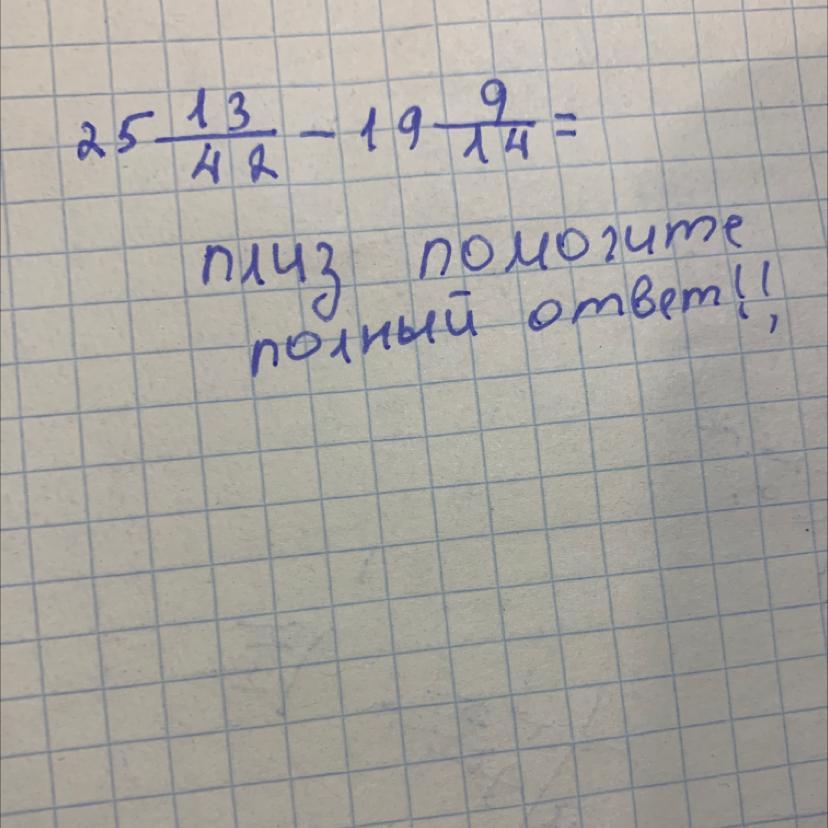 25 13/42 - 19 9/14 =
плиз помогите
полный ответ!!,